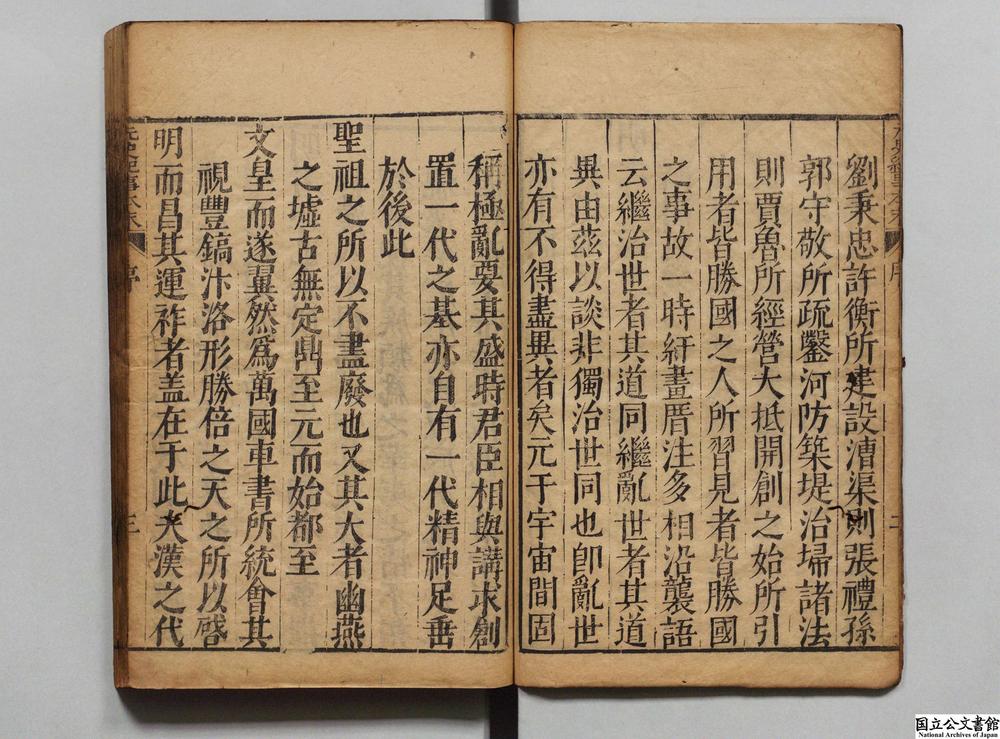 劉秉忠許衡所建設漕渠則張禮孫
郭守敬所疏鑿河防築堤治埽諸法
則賈魯所經營大抵開創之始所引
用者皆勝國之人所習見者皆勝國
之事故一時紆畫厝注多相沿襲語
云繼治世者其道同繼亂世者其道
異由茲以談非獨治世同也卽亂世
亦有不得盡異者矣元于宇宙間固
稱極亂要其盛時君臣相與講求創
置一代之基亦自有一代精神足垂
於後此
聖祖之所以不盡廢也又其大者幽燕
之墟古無定鼎至元而始都至
文皇而遂翼然爲萬國車書所統會其
視豐鎬汴洛形勝倍之天之所以啓
明而昌其運祚者盖在于此夫漢之代
序
三
国立公文書館
National Archives of Japan